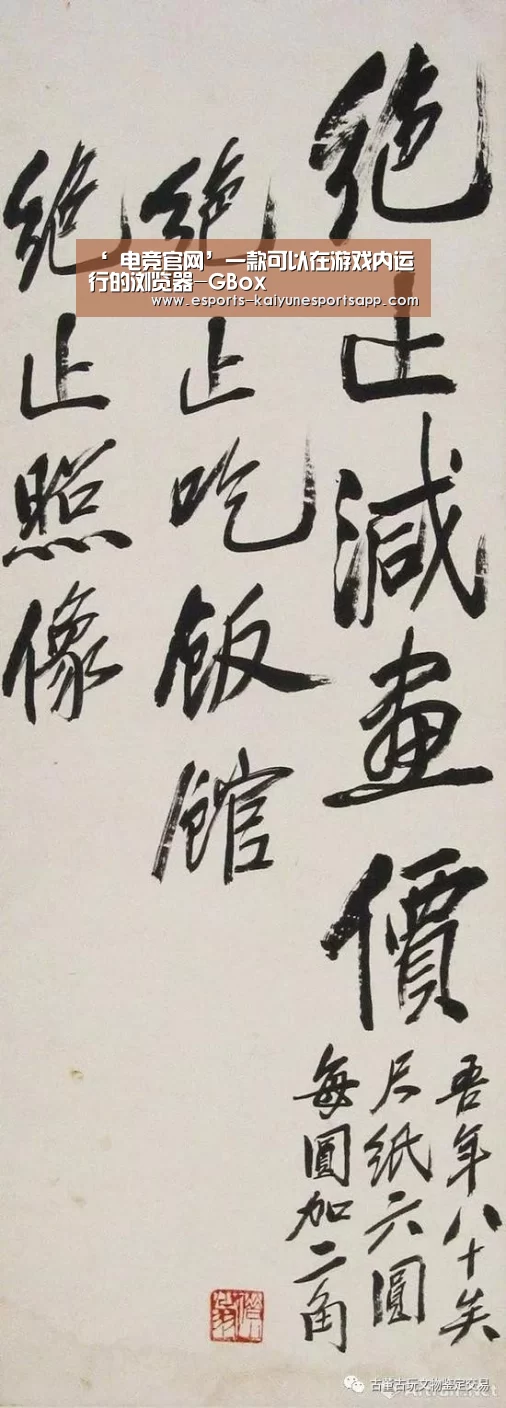 绝止減畫價
吾年八十矣
尺纸六圓
每圓加二角
绝止吃飯館
绝止照像
‘电竞官网’一款可以在游戏内运
行的浏览器-GBox
www.esports-kaiyunesportsapp.com
古董古玩文物鉴定交易